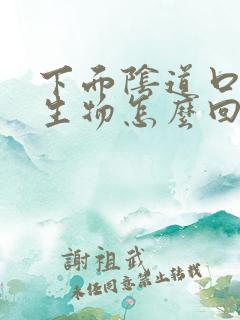 下面陰道口
生物怎麼回
謝祖武
未經同意禁止轉載